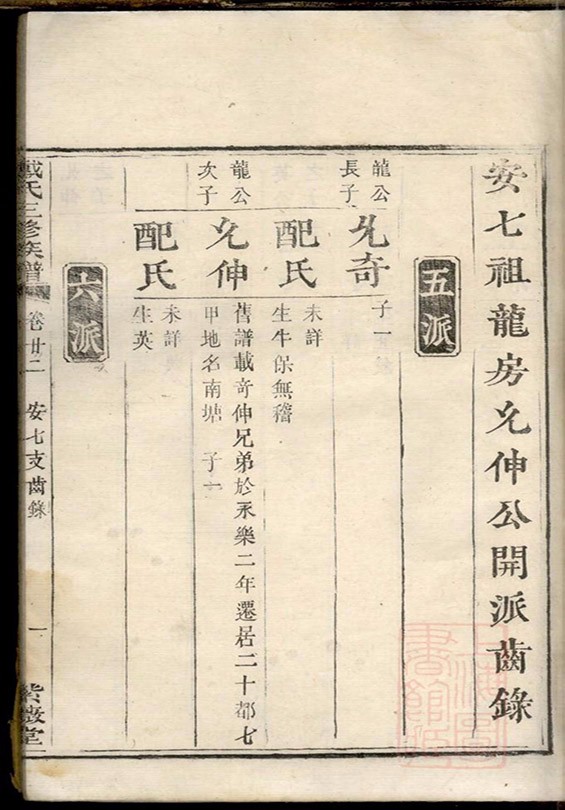 安七祖龍房允伸公開派齒錄
五派
龍公
長子
允奇
子一
配氏
未詳
生牛保無稽
龍公
次子
允伸
舊譜載奇伸兄弟於永樂二年遷居二十都七
甲地名南塘 子一
配氏
未詳
生英
六派
戴氏三修族譜 卷廿二 安七支齒錄 一 紫巖堂
上海圖
書館藏